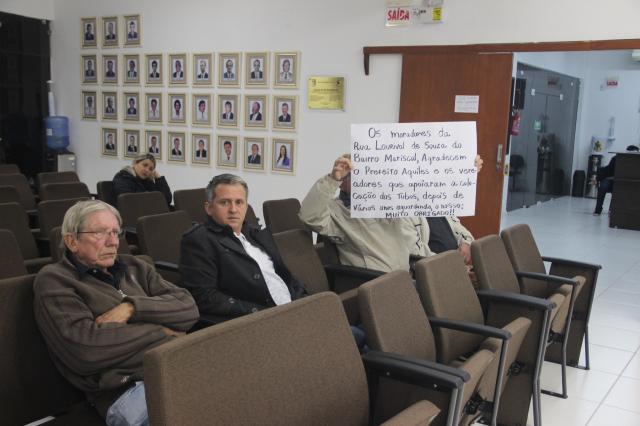 SAÍDA
OS moradores da
Rua Lourival de Souza do
Bairro Mariscal, Agradecem
O Prefeito Aquiles e os vere-
adores que apoiaram a
dos Tubos, depois de
Vários anos aguardando o nosso:
MUITO OBRIGADO!!